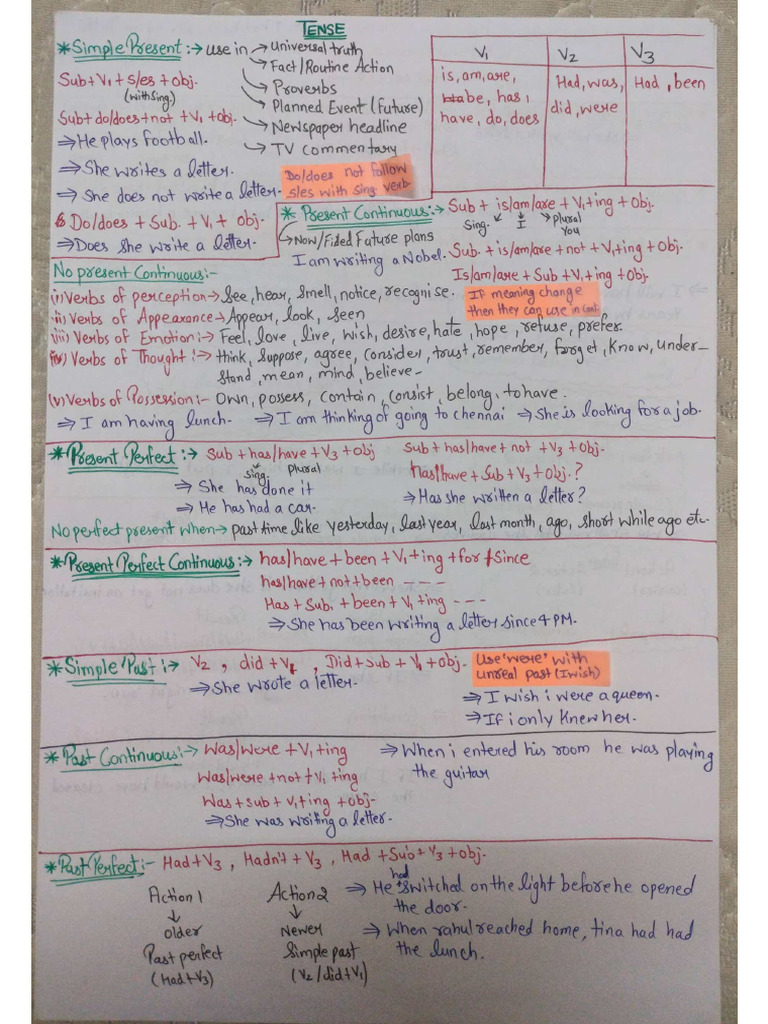 TENSE
*Simple Present :→ use in → Universal truth
→ Fact/Routine Action
→ Proverbs
→ Planned Event (Future)
→ Newspaper headline
→ TV commentary
Sub + V1 + s/es + obj.
(with Sing.)
Sub + do/does + not + V1 + obj.
⇒ He plays football.
⇒ She writes a letter.
⇒ She does not write a letter.
Do/does not follow
s/es with sing. verb
Do/does + Sub. + V1 + obj.
⇒ Does she write a letter.
V1 V2 V3
is, am, are, be, has, have, do, does
Had, was, did, were
Had, been
* Present Continuous :→ Sub + is/am/are + V1 + ing + Obj.
Sing. I Plural You
→ Now/Fided Future plans
I am writing a Nobel.
Sub. + is/am/are + not + V1 + ing + Obj.
Is/am/are + Sub + V1 + ing + Obj.
No present Continuous :-
(i) Verbs of perception → See, hear, Smell, notice, recognise.
If meaning change
then they can use in Cont.
(ii) Verbs of Appearance → Appear, look, seen
(iii) Verbs of Emotion :→ Feel, love, live, wish, desire, hate, hope, refuse, prefer.
(iv) Verbs of Thought :→ think, Suppose, agree, Consider, trust, remember, forget, Know, under-
stand, mean, mind, believe -
(v) Verbs of Possession :- Own, possess, contain, consist, belong, to have.
⇒ I am having lunch. ⇒ I am thinking of going to chennai ⇒ She is looking for a job.
* Present Perfect :→ Sub + has/have + V3 + obj
Sing. Plural
Sub + has/have + not + V3 + obj.
has/have + Sub + V3 + obj.?
⇒ She has done it
⇒ Has she written a letter?
⇒ He has had a car.
No perfect present when → past time like yesterday, last year, last month, ago, short while ago etc.
* Present Perfect Continuous :→ has/have + been + V1 + ing + for/Since
has/have + not + been - - -
Has + Sub. + been + V1 + ing - - -
⇒ She has been writing a letter since 4 PM.
* Simple Past :→ V2, did + V1, Did + sub + V1 + obj.
Use 'were' with
unreal past (I wish)
⇒ She wrote a letter.
⇒ I wish i were a queen.
⇒ If i only knew her.
* Past Continuous :→ Was/were + V1 + ing
Was/were + not + V1 + ing
Was + sub + V1 + ing + obj.
⇒ She was writing a letter.
⇒ When i entered his room he was playing
the guitar
* Past Perfect :- Had + V3, Hadn't + V3, Had + Sub + V3 + obj.
Action 1 Action 2
↓ ↓
older Newer
Past perfect Simple past
(Had + V3) (V2 / did + V1)
⇒ He had switched on the light before he opened
the door.
⇒ When rahul reached home, tina had had
the lunch.